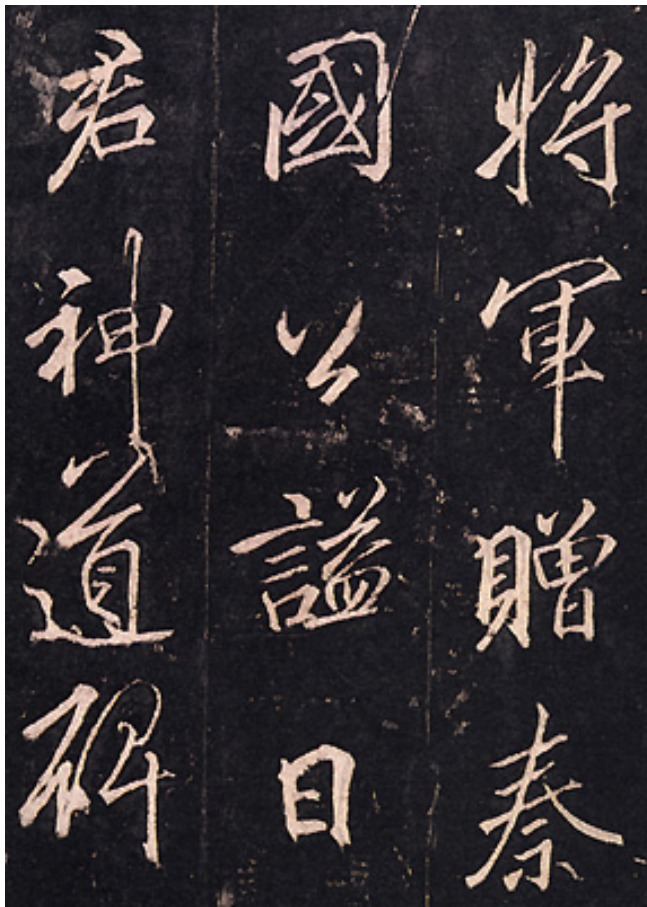 將軍贈秦
國公謚曰
君神道碑